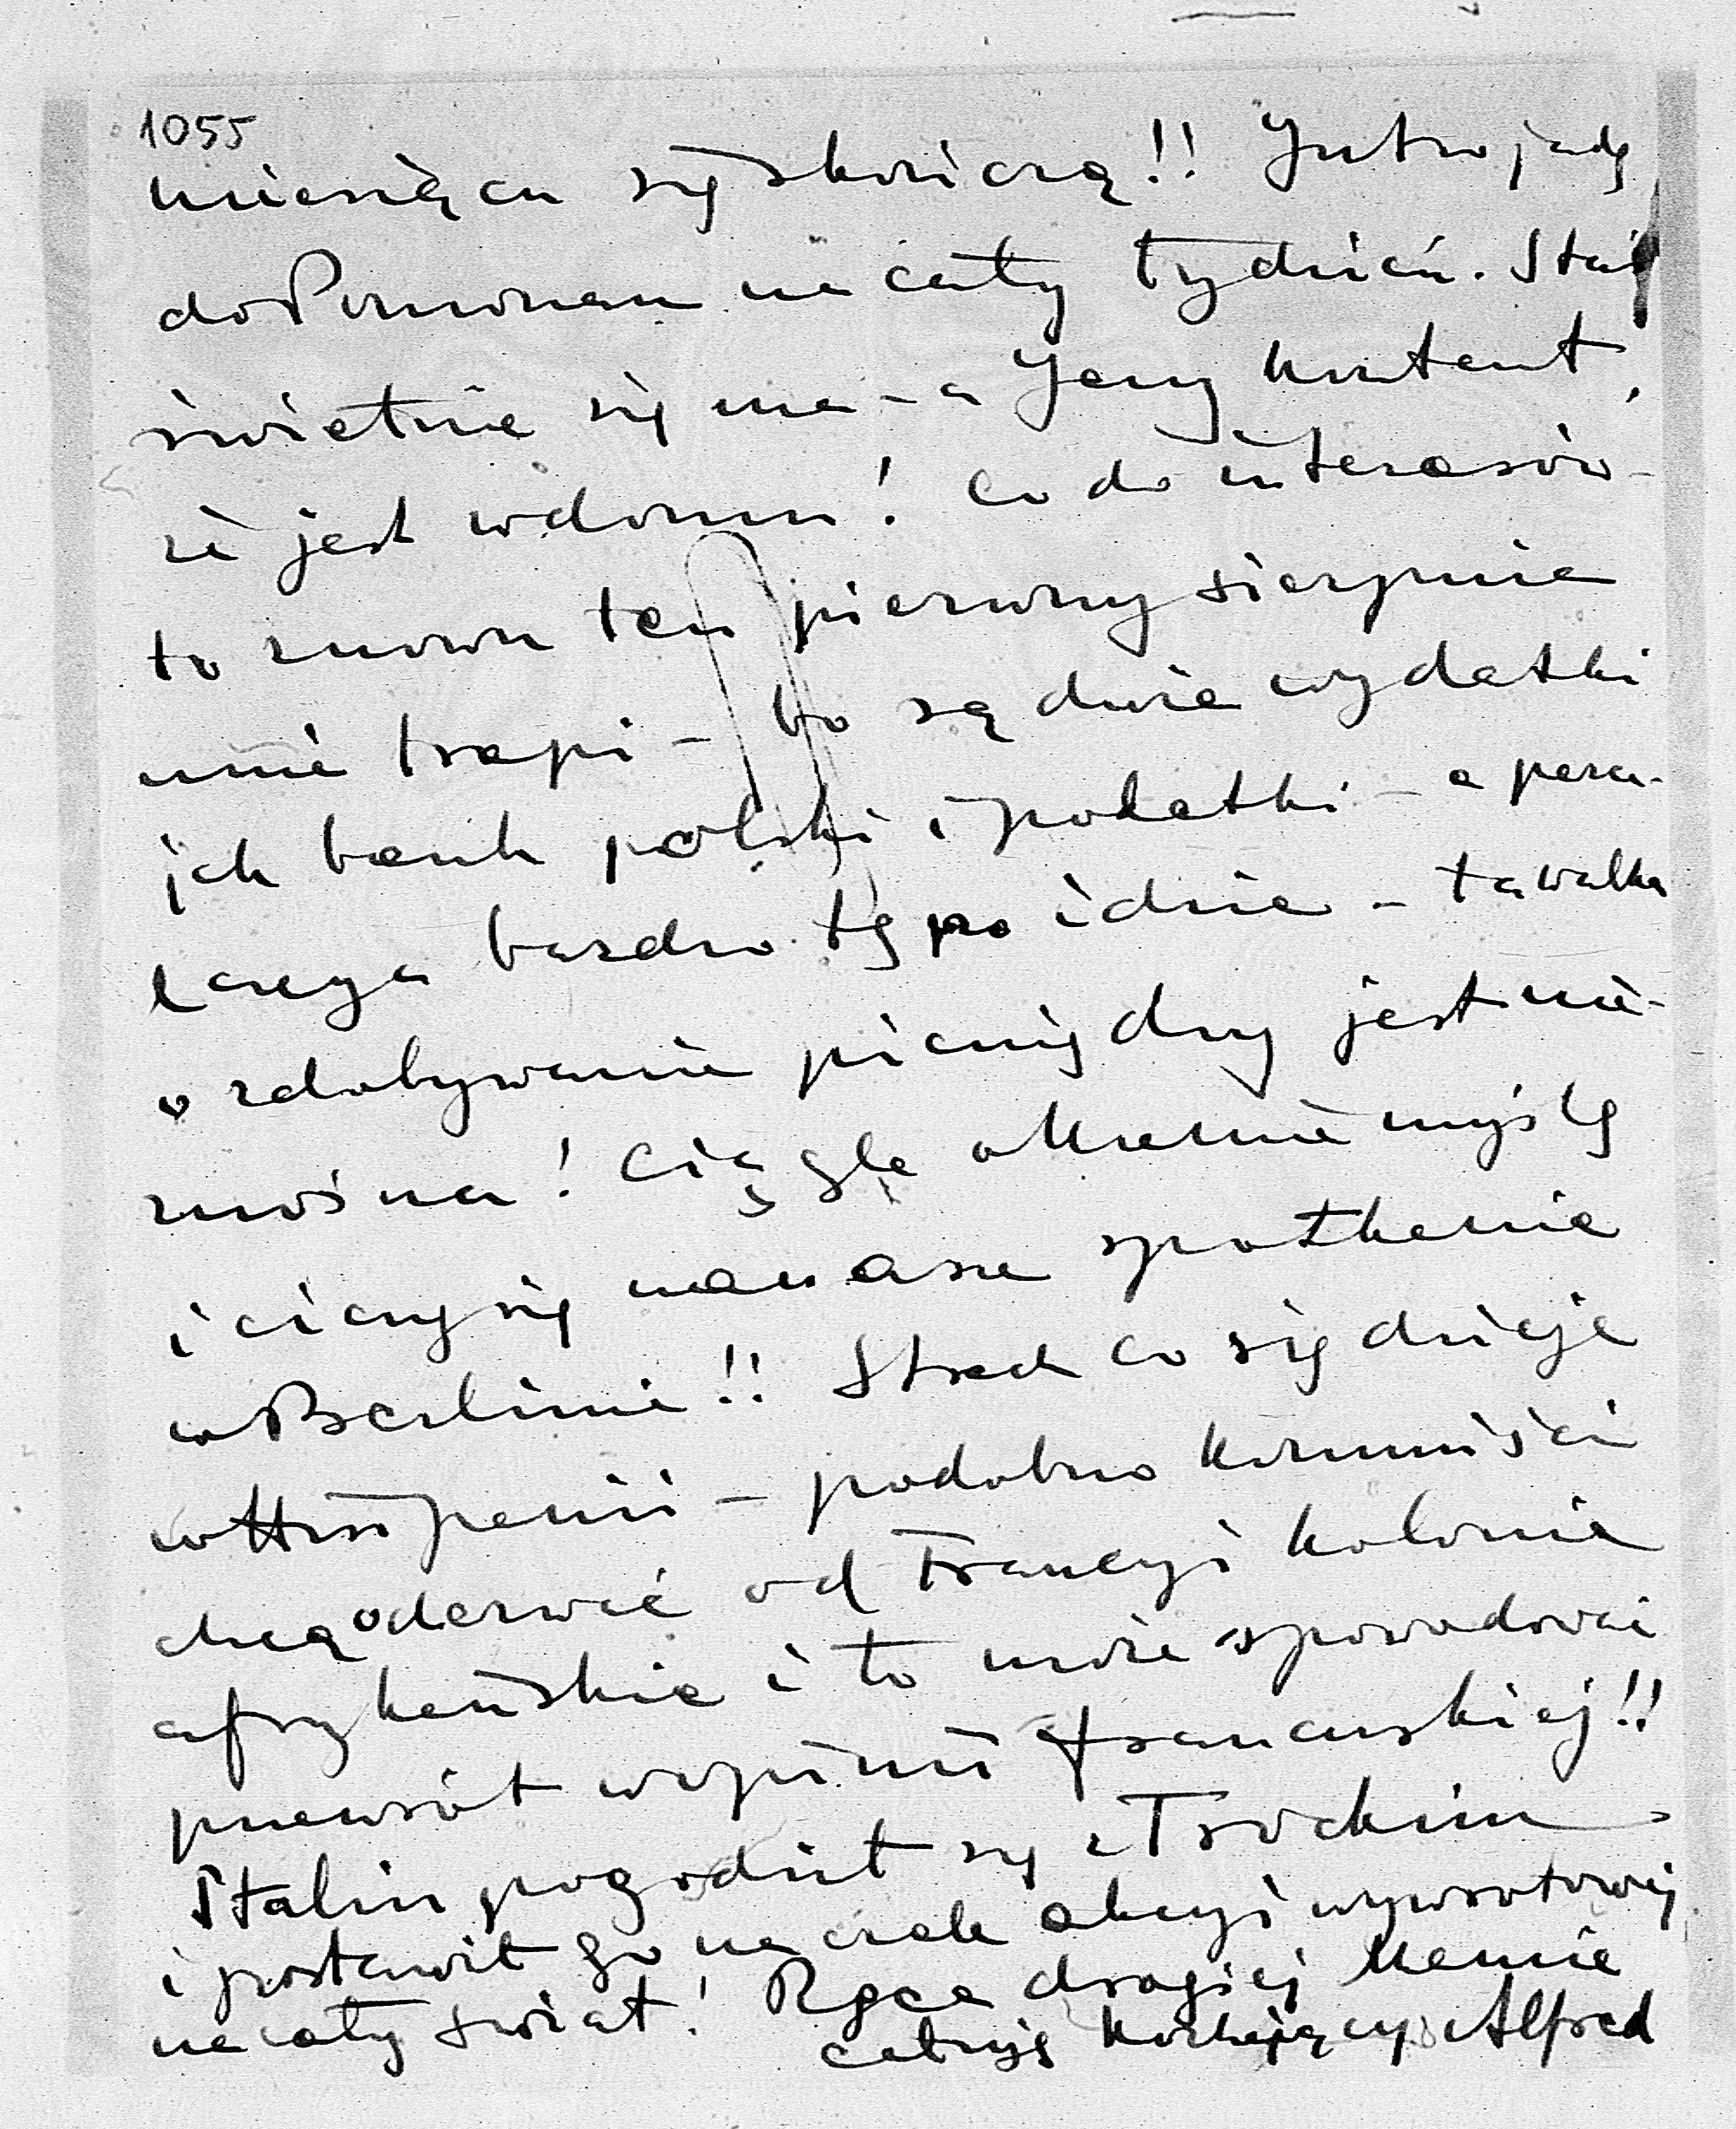 1055
miesiącu się skończą!! Jutro jadę
do Pomorzan na cały tydzień. Staś
świetnie się ma – a Jerzy kontent,
że jest w domu! Co do interesów –
to znowu ten pierwszy sierpnia
mnie trapi – bo są duże wydatki
jak bank polski i podatki – a parce-
lacya bardzo tępo idzie – ta walka
o zdobywanie pieniędzy jest nie-
znośna! Ciągle o Mamie myślę
i cieszę się na nasze spotkanie
w Berlinie!! Strach co się dzieje
w Hiszpanii – podobno komuniści
chcą oderwać od Francyi kolonie
afrykańskie i to może spowodować
przewrót w opinii francuskiej!!
Stalin pogodził się z Trockim
i postawił go na czele akcyi wywrotowej
na cały świat! Ręce drogiej Mamie
całuję kochający Alfred